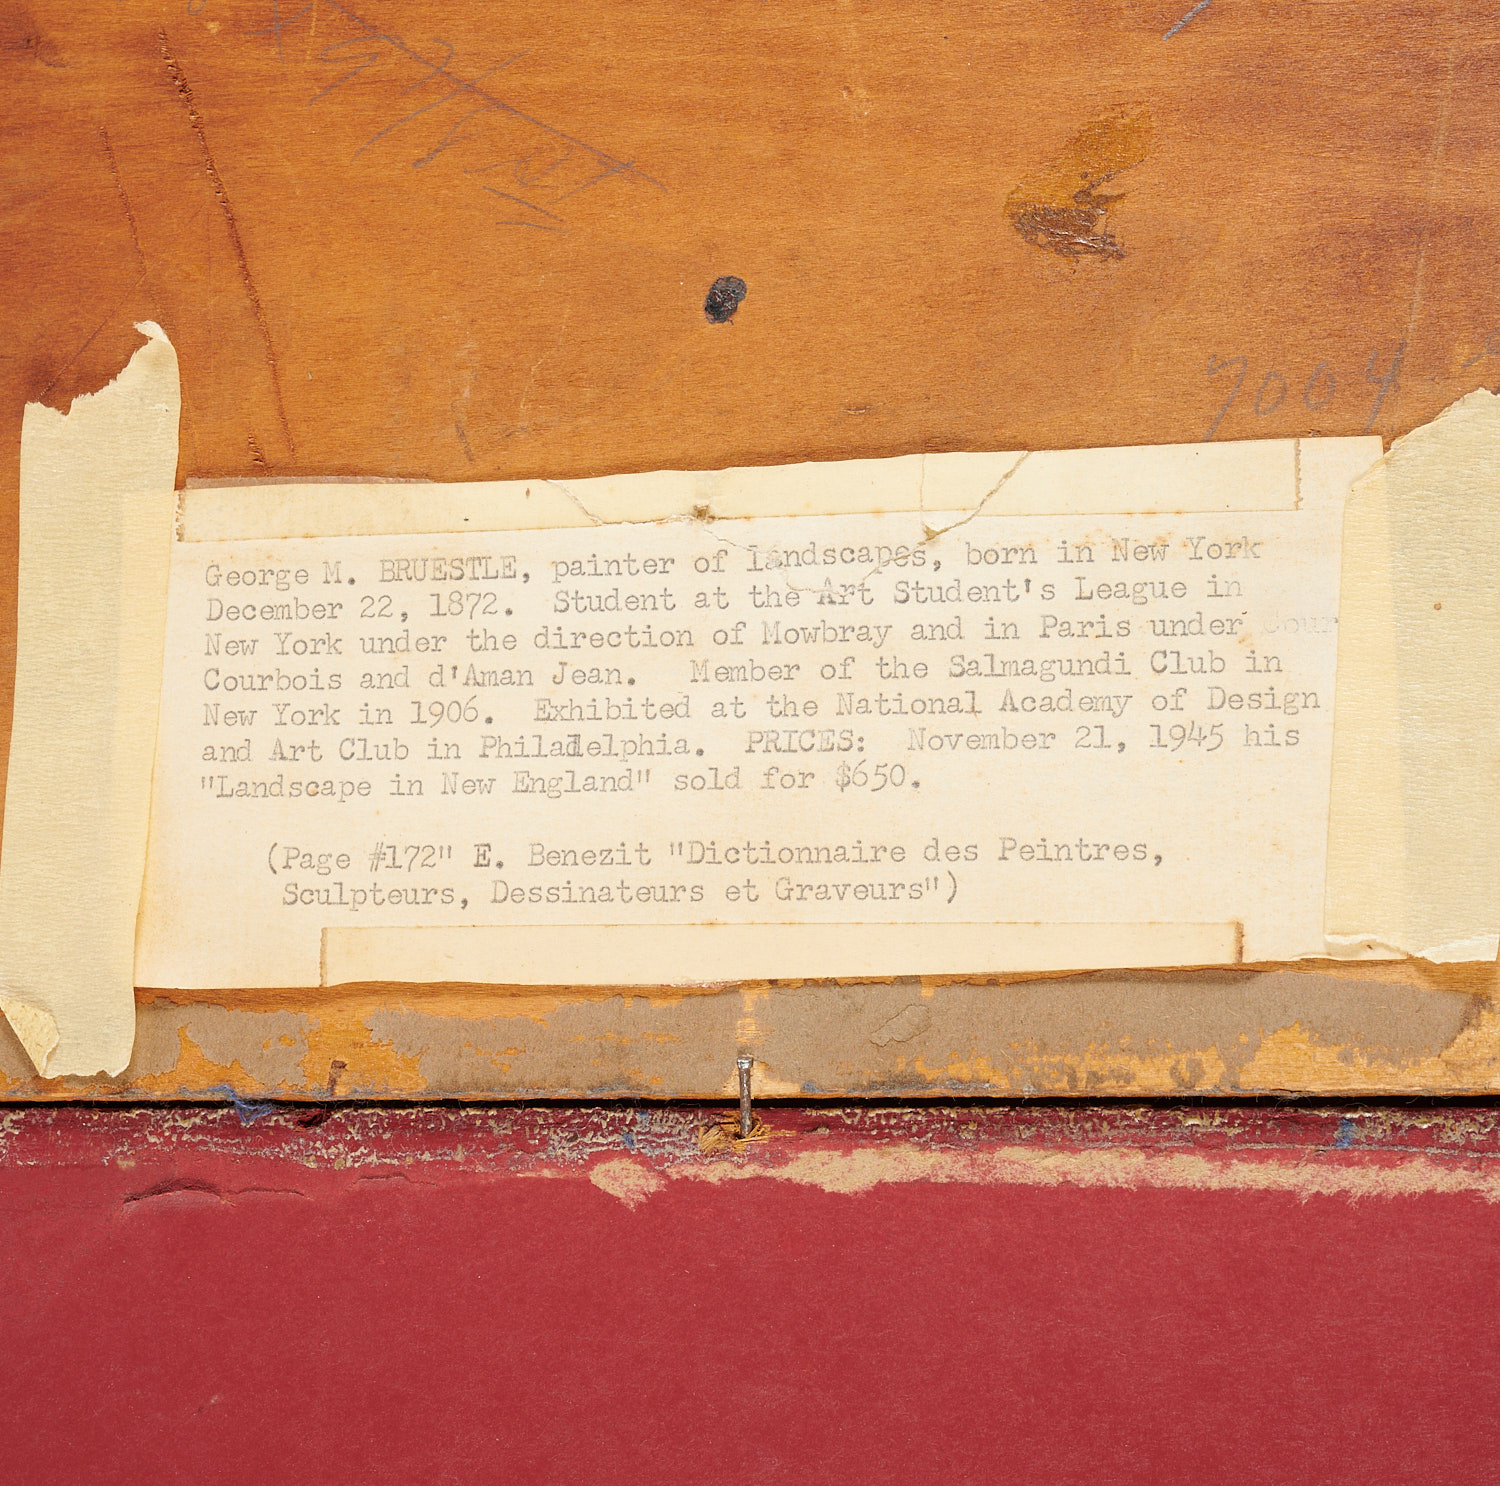 7004
George M. BRUESTLE, painter of landscapes, born in New York
December 22, 1872. Student at the Art Student's League in
New York under the direction of Mowbray and in Paris under Cour
Courbois and d'Aman Jean. Member of the Salmagundi Club in
New York in 1906. Exhibited at the National Academy of Design
and Art Club in Philadelphia. PRICES: November 21, 1945 his
"Landscape in New England" sold for $650.
(Page #172" E. Benezit "Dictionnaire des Peintres,
Sculpteurs, Dessinateurs et Graveurs")